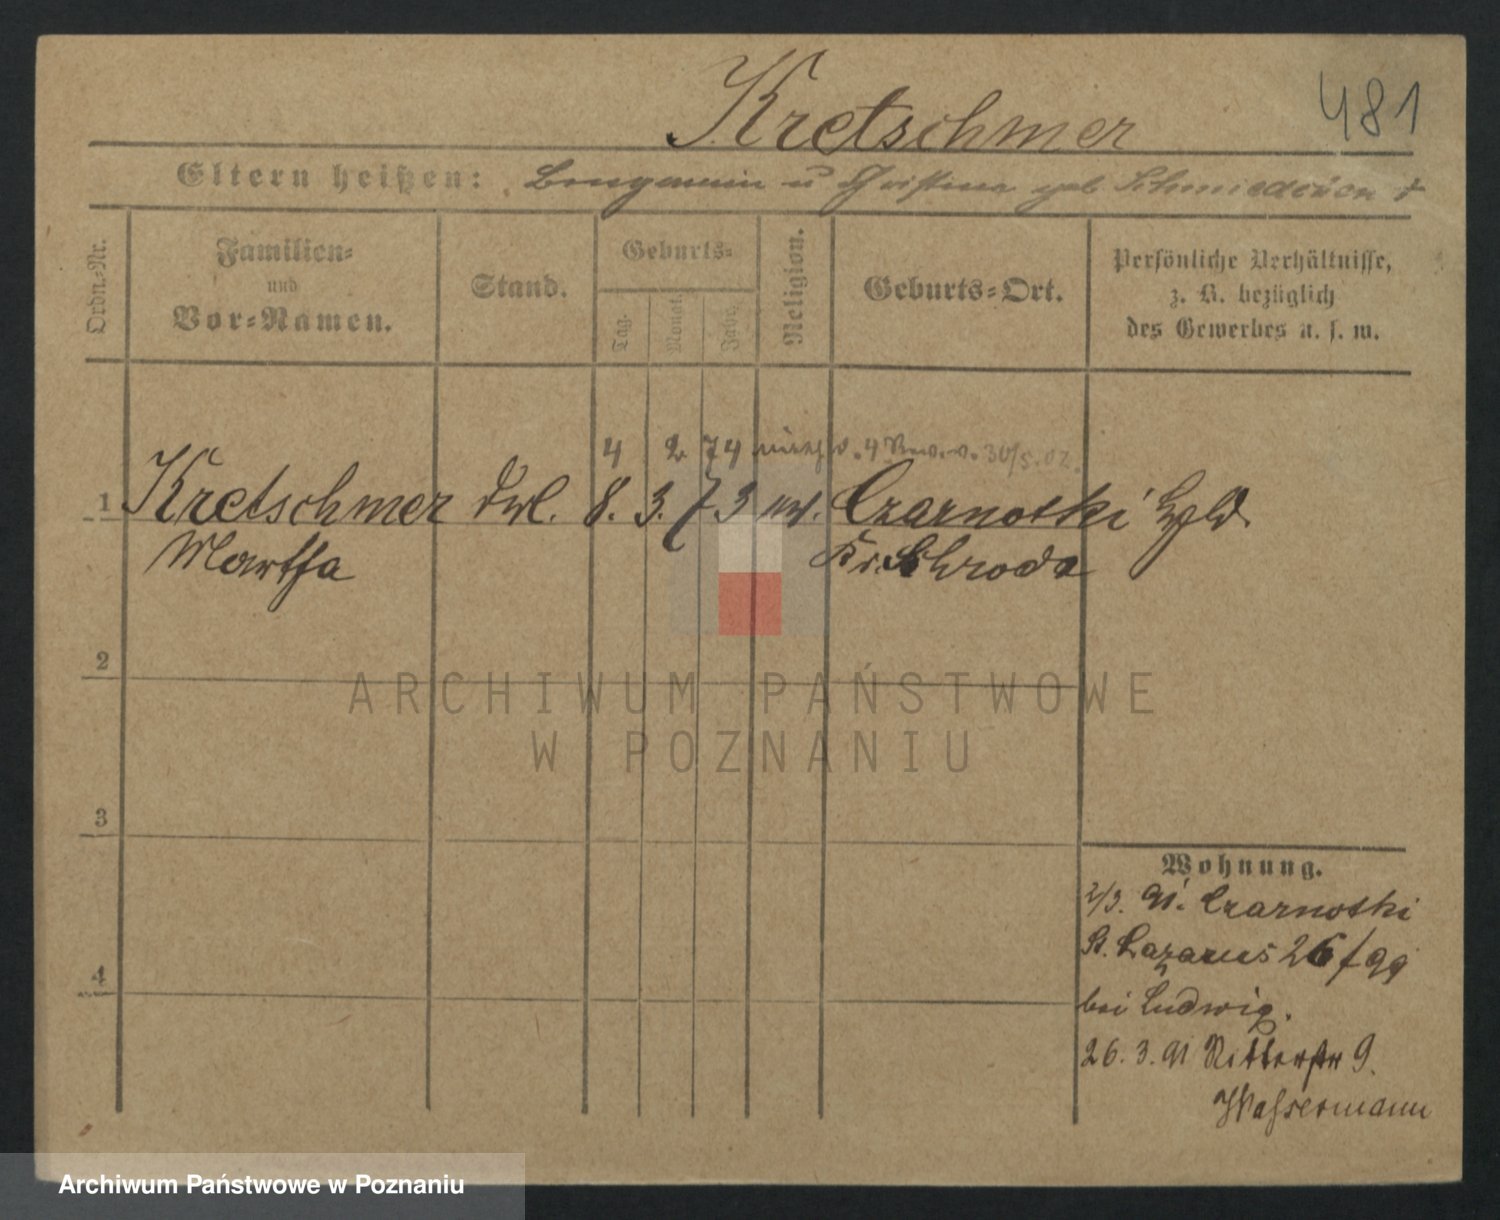 Kretschmer
481
Eltern heißen: Bengamin u Christine geb
Ordn.-Nr.
Familien-
und
Vor-Namen.
Stand.
Geburts-
Tag.
Monat.
Jahr.
Religion.
Geburts-Ort.
Persönliche Verhältnisse,
z. B. bezüglich
des Gewerbes u. s. w.
4 2 74 30/5.02.
1 Kretschmer 8. 3. 73 Czarnotki
Martha Kr. Schroda
2
ARCHIWUM PAŃSTWOWE
W POZNANIU
3
Wohnung.
2/3. 91. Czarnotki
St. Lazarus 26/99
4
bei Ludwig.
26. 3. 91 Ritterstr 9.
Wassermann
Archiwum Państwowe w Poznaniu